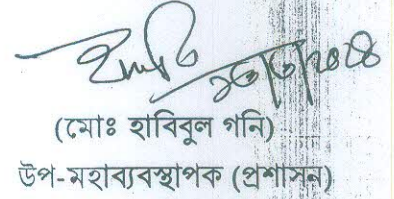 (মোঃ হাবিবুল গনি)
উপ-মহাব্যবস্থাপক (প্রশাসন)